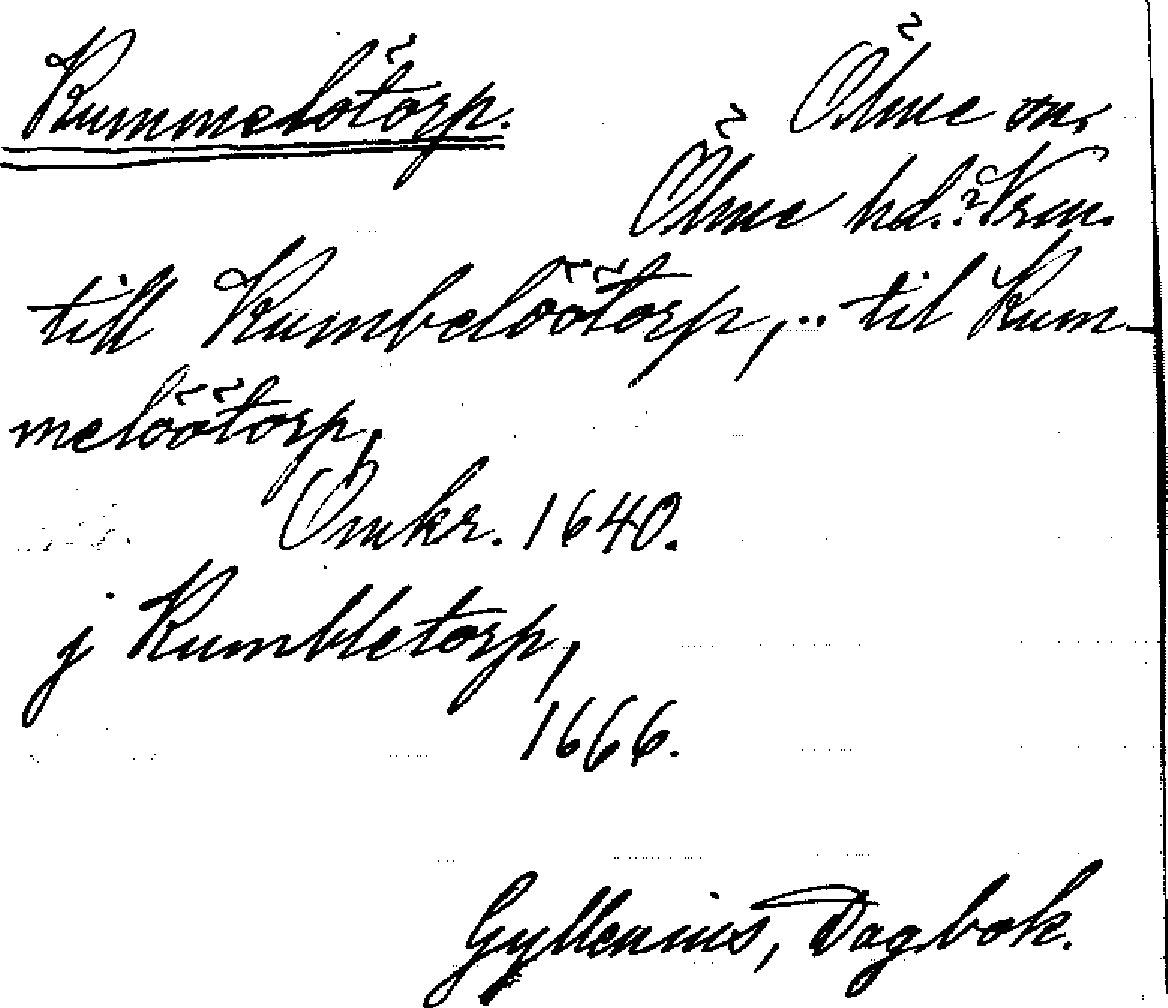 Kummelötorp. Ölme sn,
Ölme hd. Vrm.
till Kumbelöötorp, .. til Kum-
melöötorp,
Omkr. 1640.
j Kumbletorp,
1666.
Gyllenius, Dagbok.